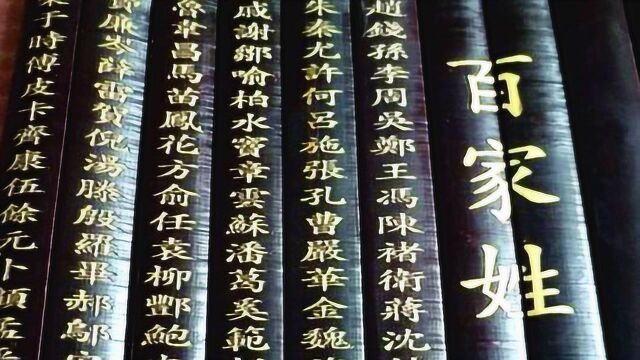 百家姓
趙錢孫李周吳鄭王馮陳褚衛蔣沈
朱秦尤許何呂施張孔曹嚴華金魏
戚謝鄒喻柏水竇章雲蘇潘葛奚範
魯韋昌馬苗鳳花方俞任袁柳酆鮑
廉岑薛雷賀倪湯滕殷羅畢郝鄔安
于時傅皮卡齊康伍餘元卜顧孟